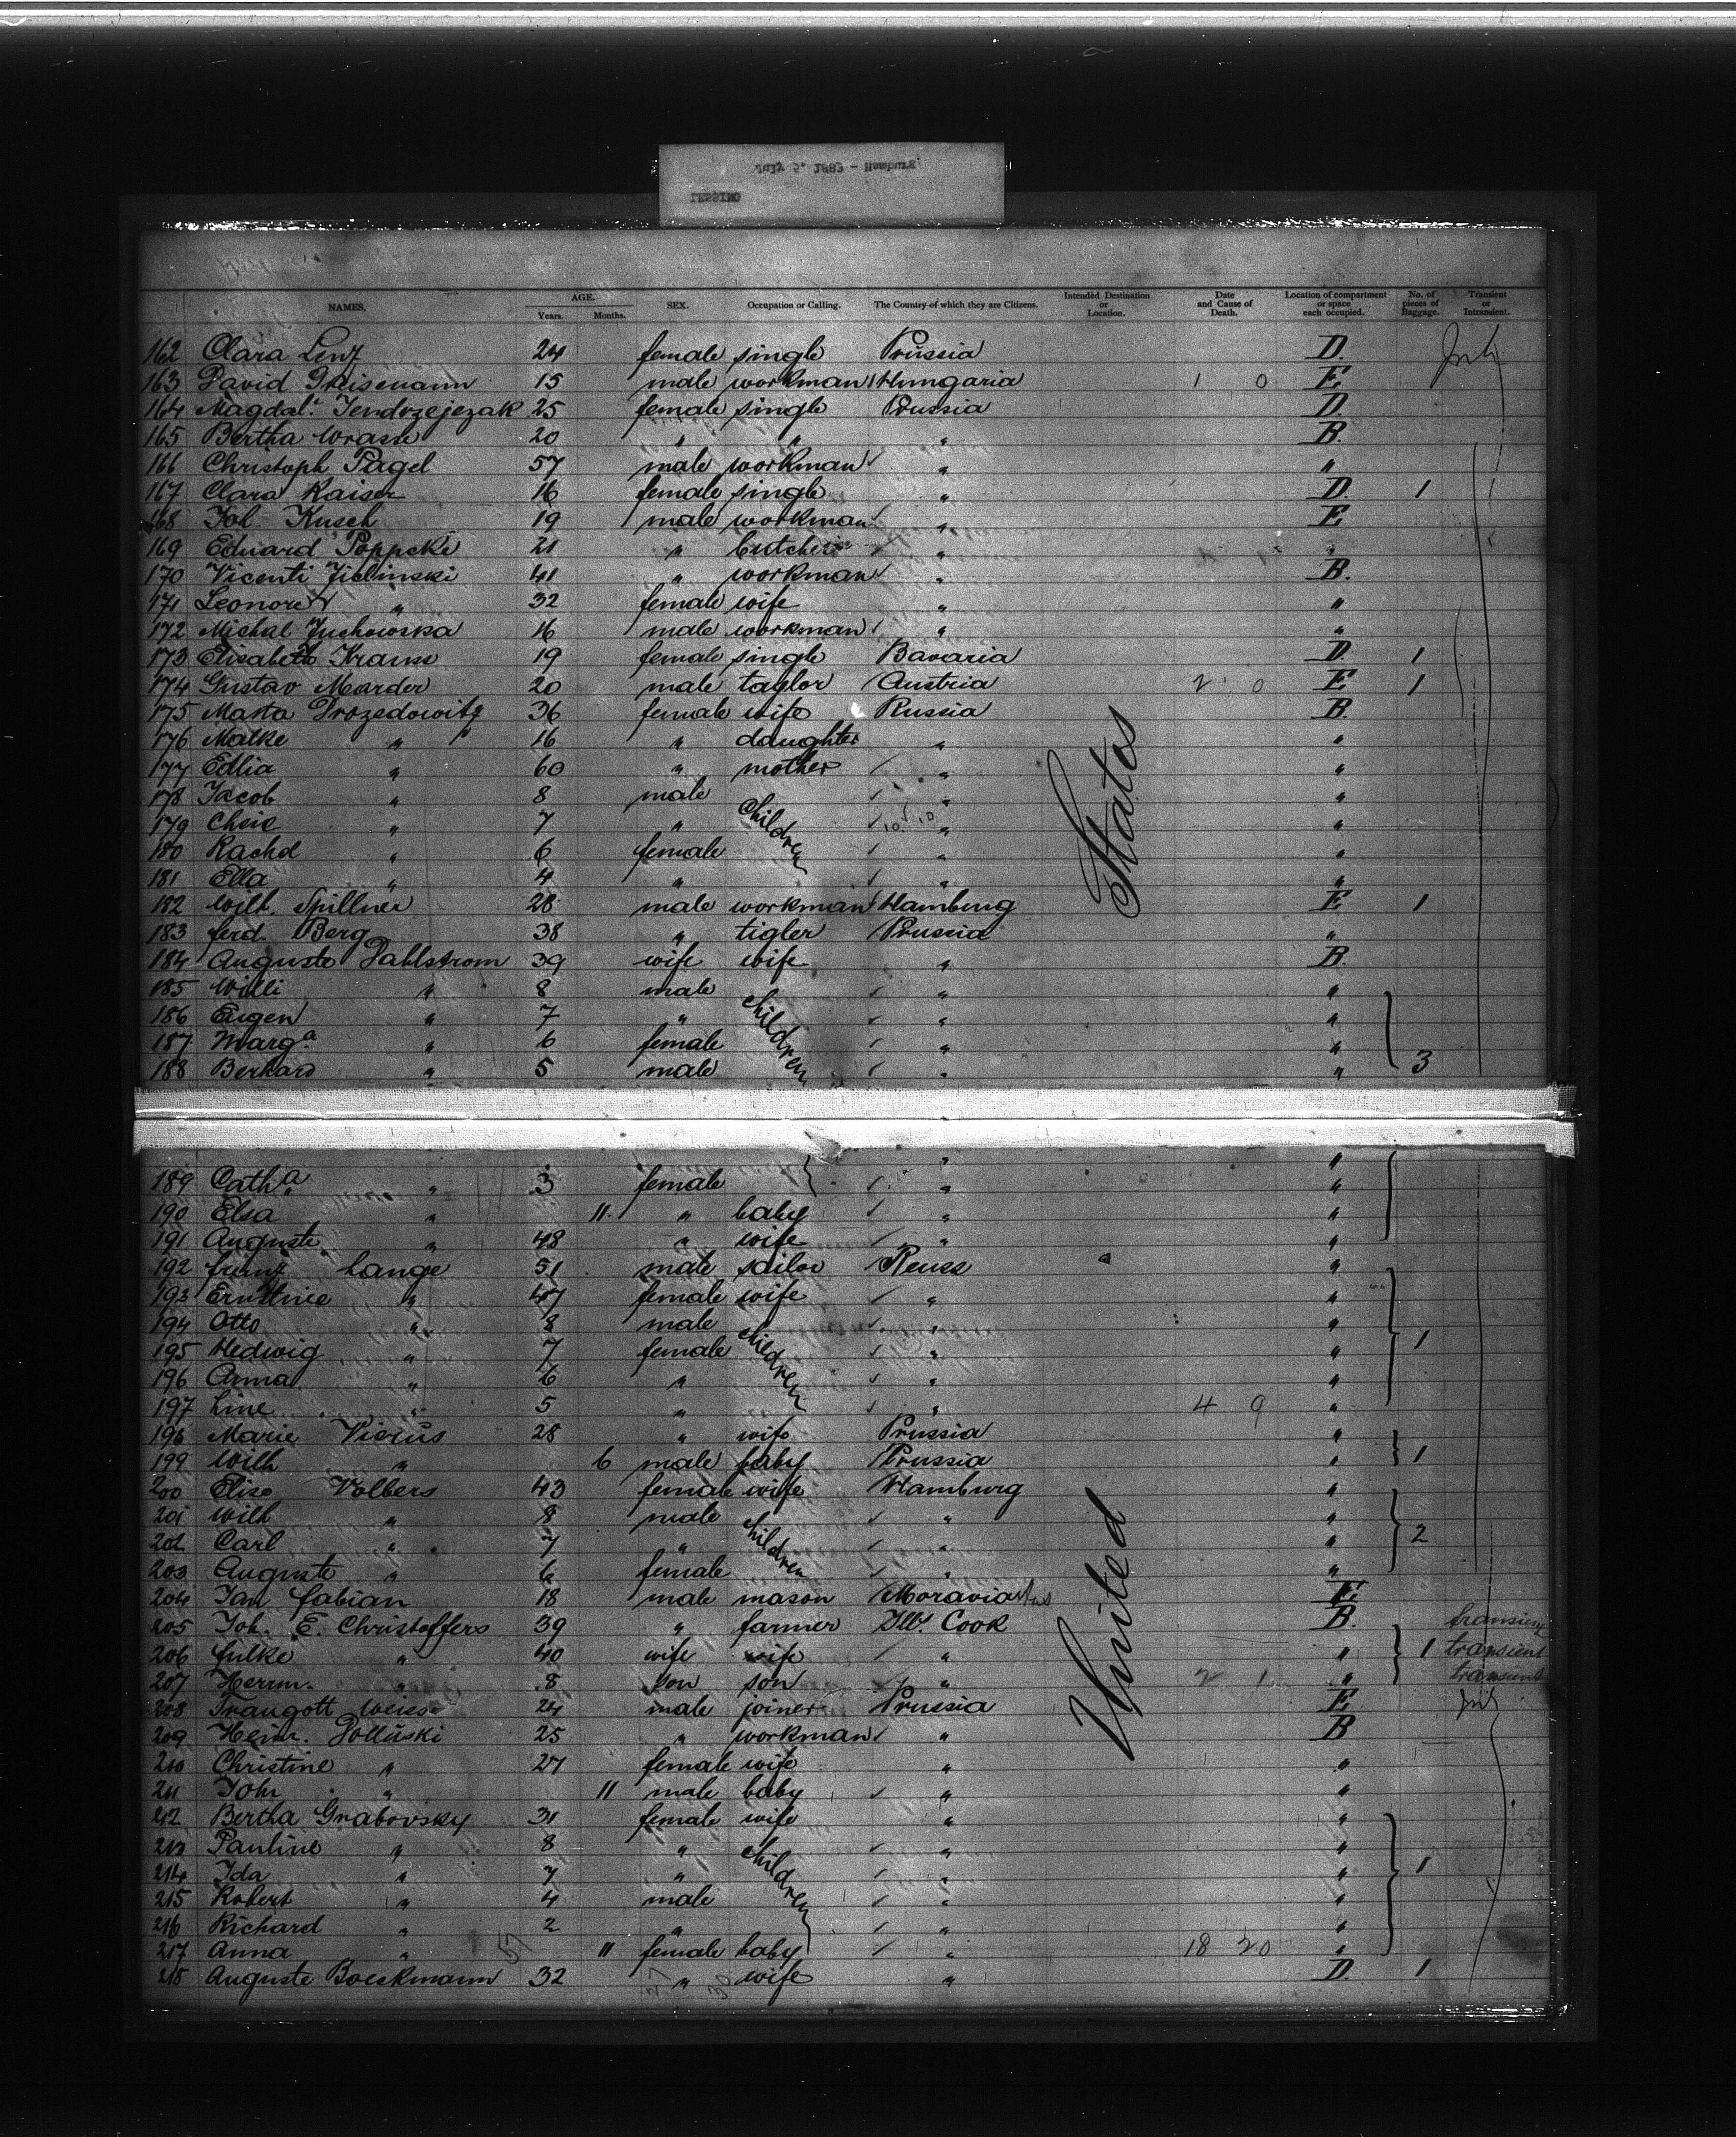 July 5, 1883 - Hamburg.
LESSING
NAMES. AGE. Years. Months. SEX. Occupation or Calling. The Country of which they are Citizens. Intended Destination or Location. Date and Cause of Death. Location of compartment or space each occupied. No. of pieces of Baggage. Transient or Intransient.
162 Clara Lenz 24 female single Prussia D.
163 David Greisemann 15 male workman Hungaria 1 0 E
164 Magdal. Jendrzejezak 25 female single Prussia D.
165 Bertha Wrasse 20 " " " B.
166 Christoph Pagel 57 male workman " "
167 Clara Kaiser 16 female single " D. 1
168 Joh. Kusch 19 male workman " E
169 Eduard Poppcke 21 " butcher " "
170 Vicenti Zielinski 41 " workman " B.
171 Leonore " 32 female wife " "
172 Michal Zuchowska 16 male workman " "
173 Elisabeth Krause 19 female single Bavaria D. 1
174 Gustav Marder 20 male taylor Austria 2 0 E 1
175 Masta Drozedowitz 36 female wife Russia B.
176 Malke " 16 " daughter " "
177 Edlia " 60 " mother " "
178 Jacob " 8 male children " "
179 Cheie " 7 " 10 10 " "
180 Rachel " 6 female " "
181 Ella " 4 " " "
182 Wilh. Spillner 28 male workman Hamburg E 1
183 ferd. Berg 38 " tigler Prussia "
184 Auguste Dahlstrom 39 wife wife " B.
185 Willi " 8 male children " "
186 Eugen " 7 " " "
187 Marg.a " 6 female " "
188 Berhard " 5 male " " 3
189 Cath.a " 3 female " "
190 Elsa " 11. " baby " "
191 Auguste " 48 " wife " "
192 franz Lange 51 male sailor Reuss "
193 Ernstine " 47 female wife " "
194 Otto " 8 male children " "
195 Hedwig " 7 female " " 1
196 Anna " 6 " " "
197 Line " 5 " " 4 9 "
198 Marie Vierus 28 " wife Prussia "
199 Wilh " 6 male baby Prussia " 1
200 Elise Volbers 43 female wife Hamburg "
201 Wilh " 8 male children " "
202 Carl " 7 " " " 2
203 Auguste " 6 female " "
204 Jan fabian 18 male mason Moravia E.
205 Joh. E. Christoffers 39 " farmer Ills. Cook B. transient
206 fulke " 40 wife wife " " 1 transient
207 Herm. " 8 son son " 2 1 " transient
208 Traugott Weiss 24 male joiner Prussia E
209 Heinr. Dolluski 25 " workman " B
210 Christine " 27 female wife " "
211 Joh " 11 male baby " "
212 Bertha Grabovsky 31 female wife " "
213 Pauline " 8 " children " "
214 Ida " 7 " " " 1
215 Robert " 4 male " "
216 Richard " 2 " " "
217 Anna " 11 female baby " 18 20 "
218 Auguste Boeckmann 32 " wife " D. 1
United States